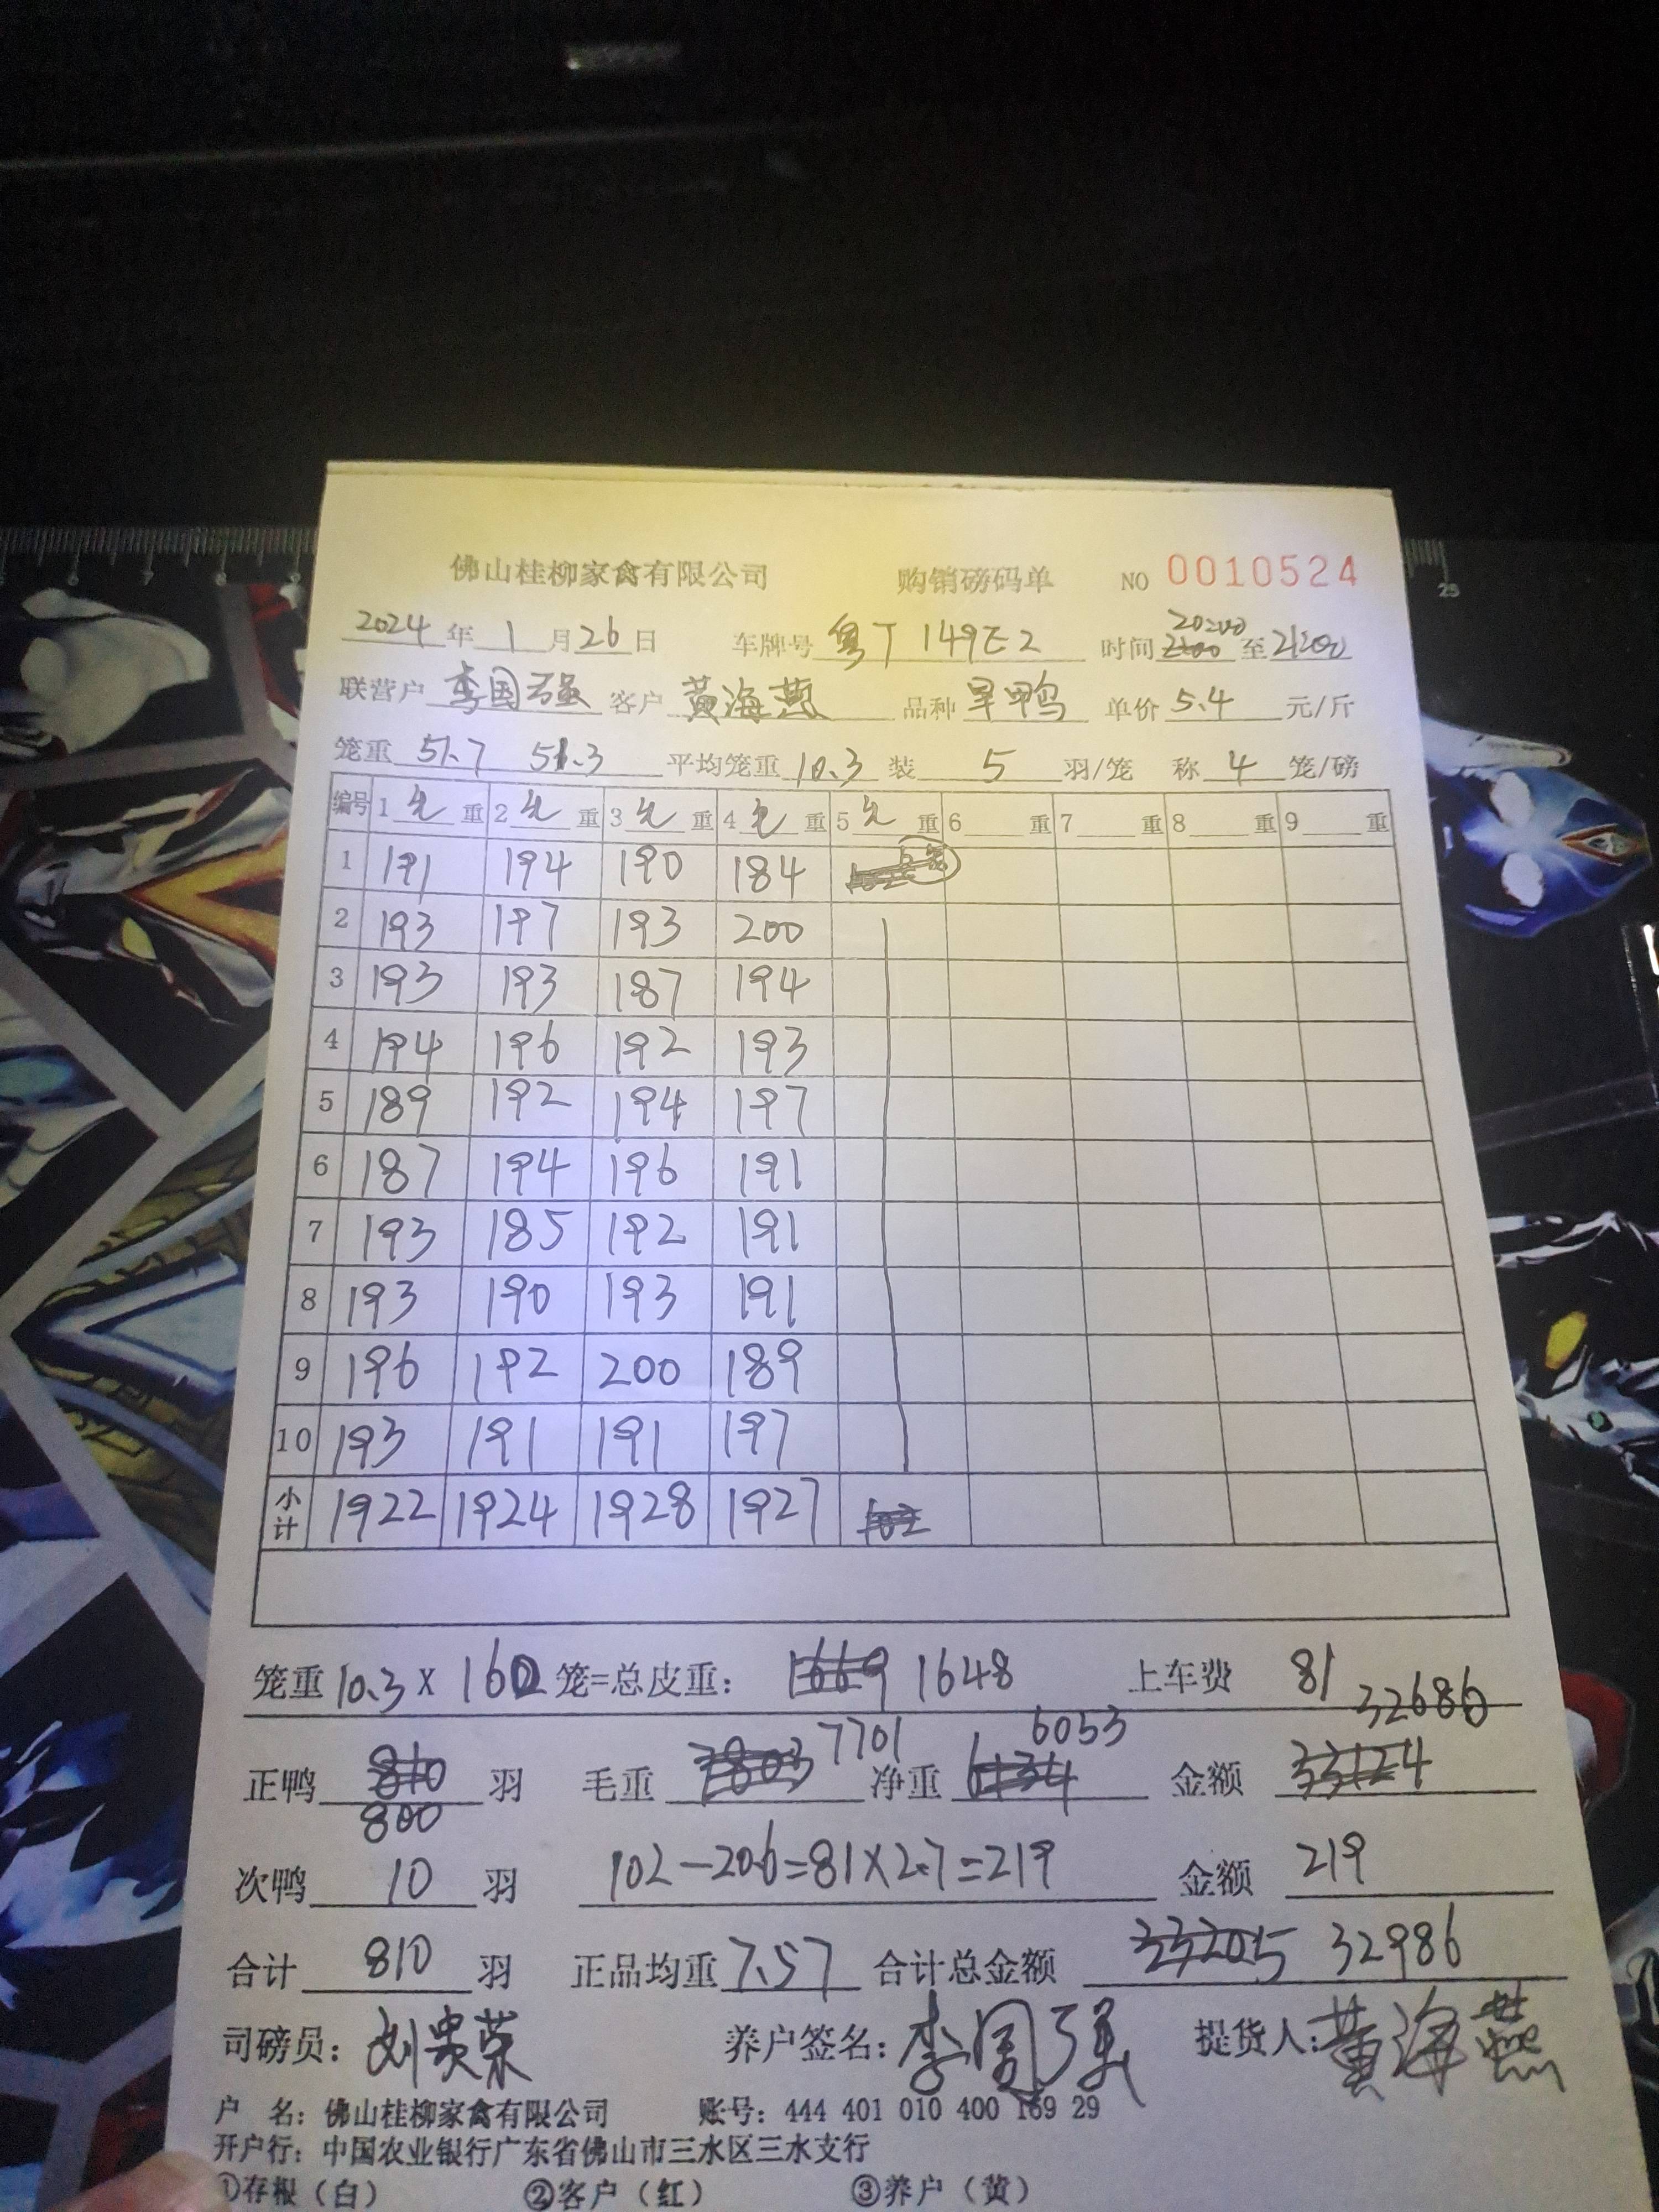 佛山桂柳家禽有限公司 购销磅码单 NO 0010524
2024年1月26日 车牌号 粤T 149E2 时间 20:00 至 21:00
联营户 李国强 客户 黄海燕 品种 旱鸭 单价 5.4 元/斤
笼重 51.7 51.3 平均笼重 10.3 装 5 羽/笼 称 4 笼/磅
编号 1 毛 重 2 毛 重 3 毛 重 4 毛 重 5 毛 重 6 重 7 重 8 重 9 重
1 191 194 190 184
2 193 197 193 200
3 193 193 187 194
4 194 196 192 193
5 189 192 194 197
6 187 194 196 191
7 193 185 192 191
8 193 190 193 191
9 196 192 200 189
10 193 191 191 197
小计 1922 1924 1928 1927 102
笼重 10.3 x 160 笼=总皮重: 1669 1648 上车费 81
32686
7701 6053
正鸭 810 羽 毛重 7803 净重 6134 金额 33124
800
次鸭 10 羽 102-20.6=81X2.7=219 金额 219
合计 810 羽 正品均重 7.57 合计总金额 33205 32986
司磅员: 刘贵荣 养户签名: 李国强 提货人: 黄海燕
户 名: 佛山桂柳家禽有限公司 账号: 444 401 010 400 169 29
开户行: 中国农业银行广东省佛山市三水区三水支行
①存根(白) ②客户(红) ③养户(黄)